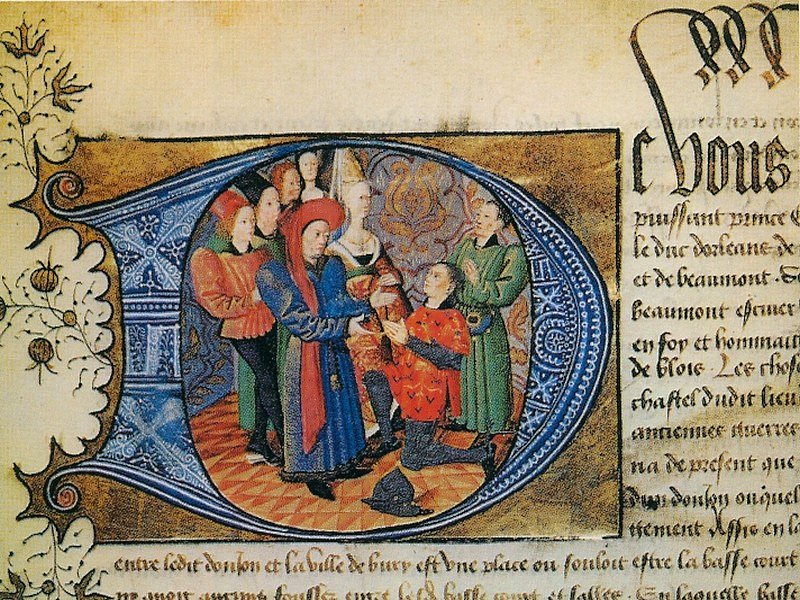 D
chous
puissant prince
le duc dorleans de
et de beaumont
beaumont escuier
en foy et hommaige
de blois. Les chos
chastel dudit lieu
anciennes guerres
na de present que
dun donjon ou quel
ttement Assis en la
entre ledit donjon et la ville de bury est vne place ou souloit estre la basse court
la basse court et salles. En laquelle basse